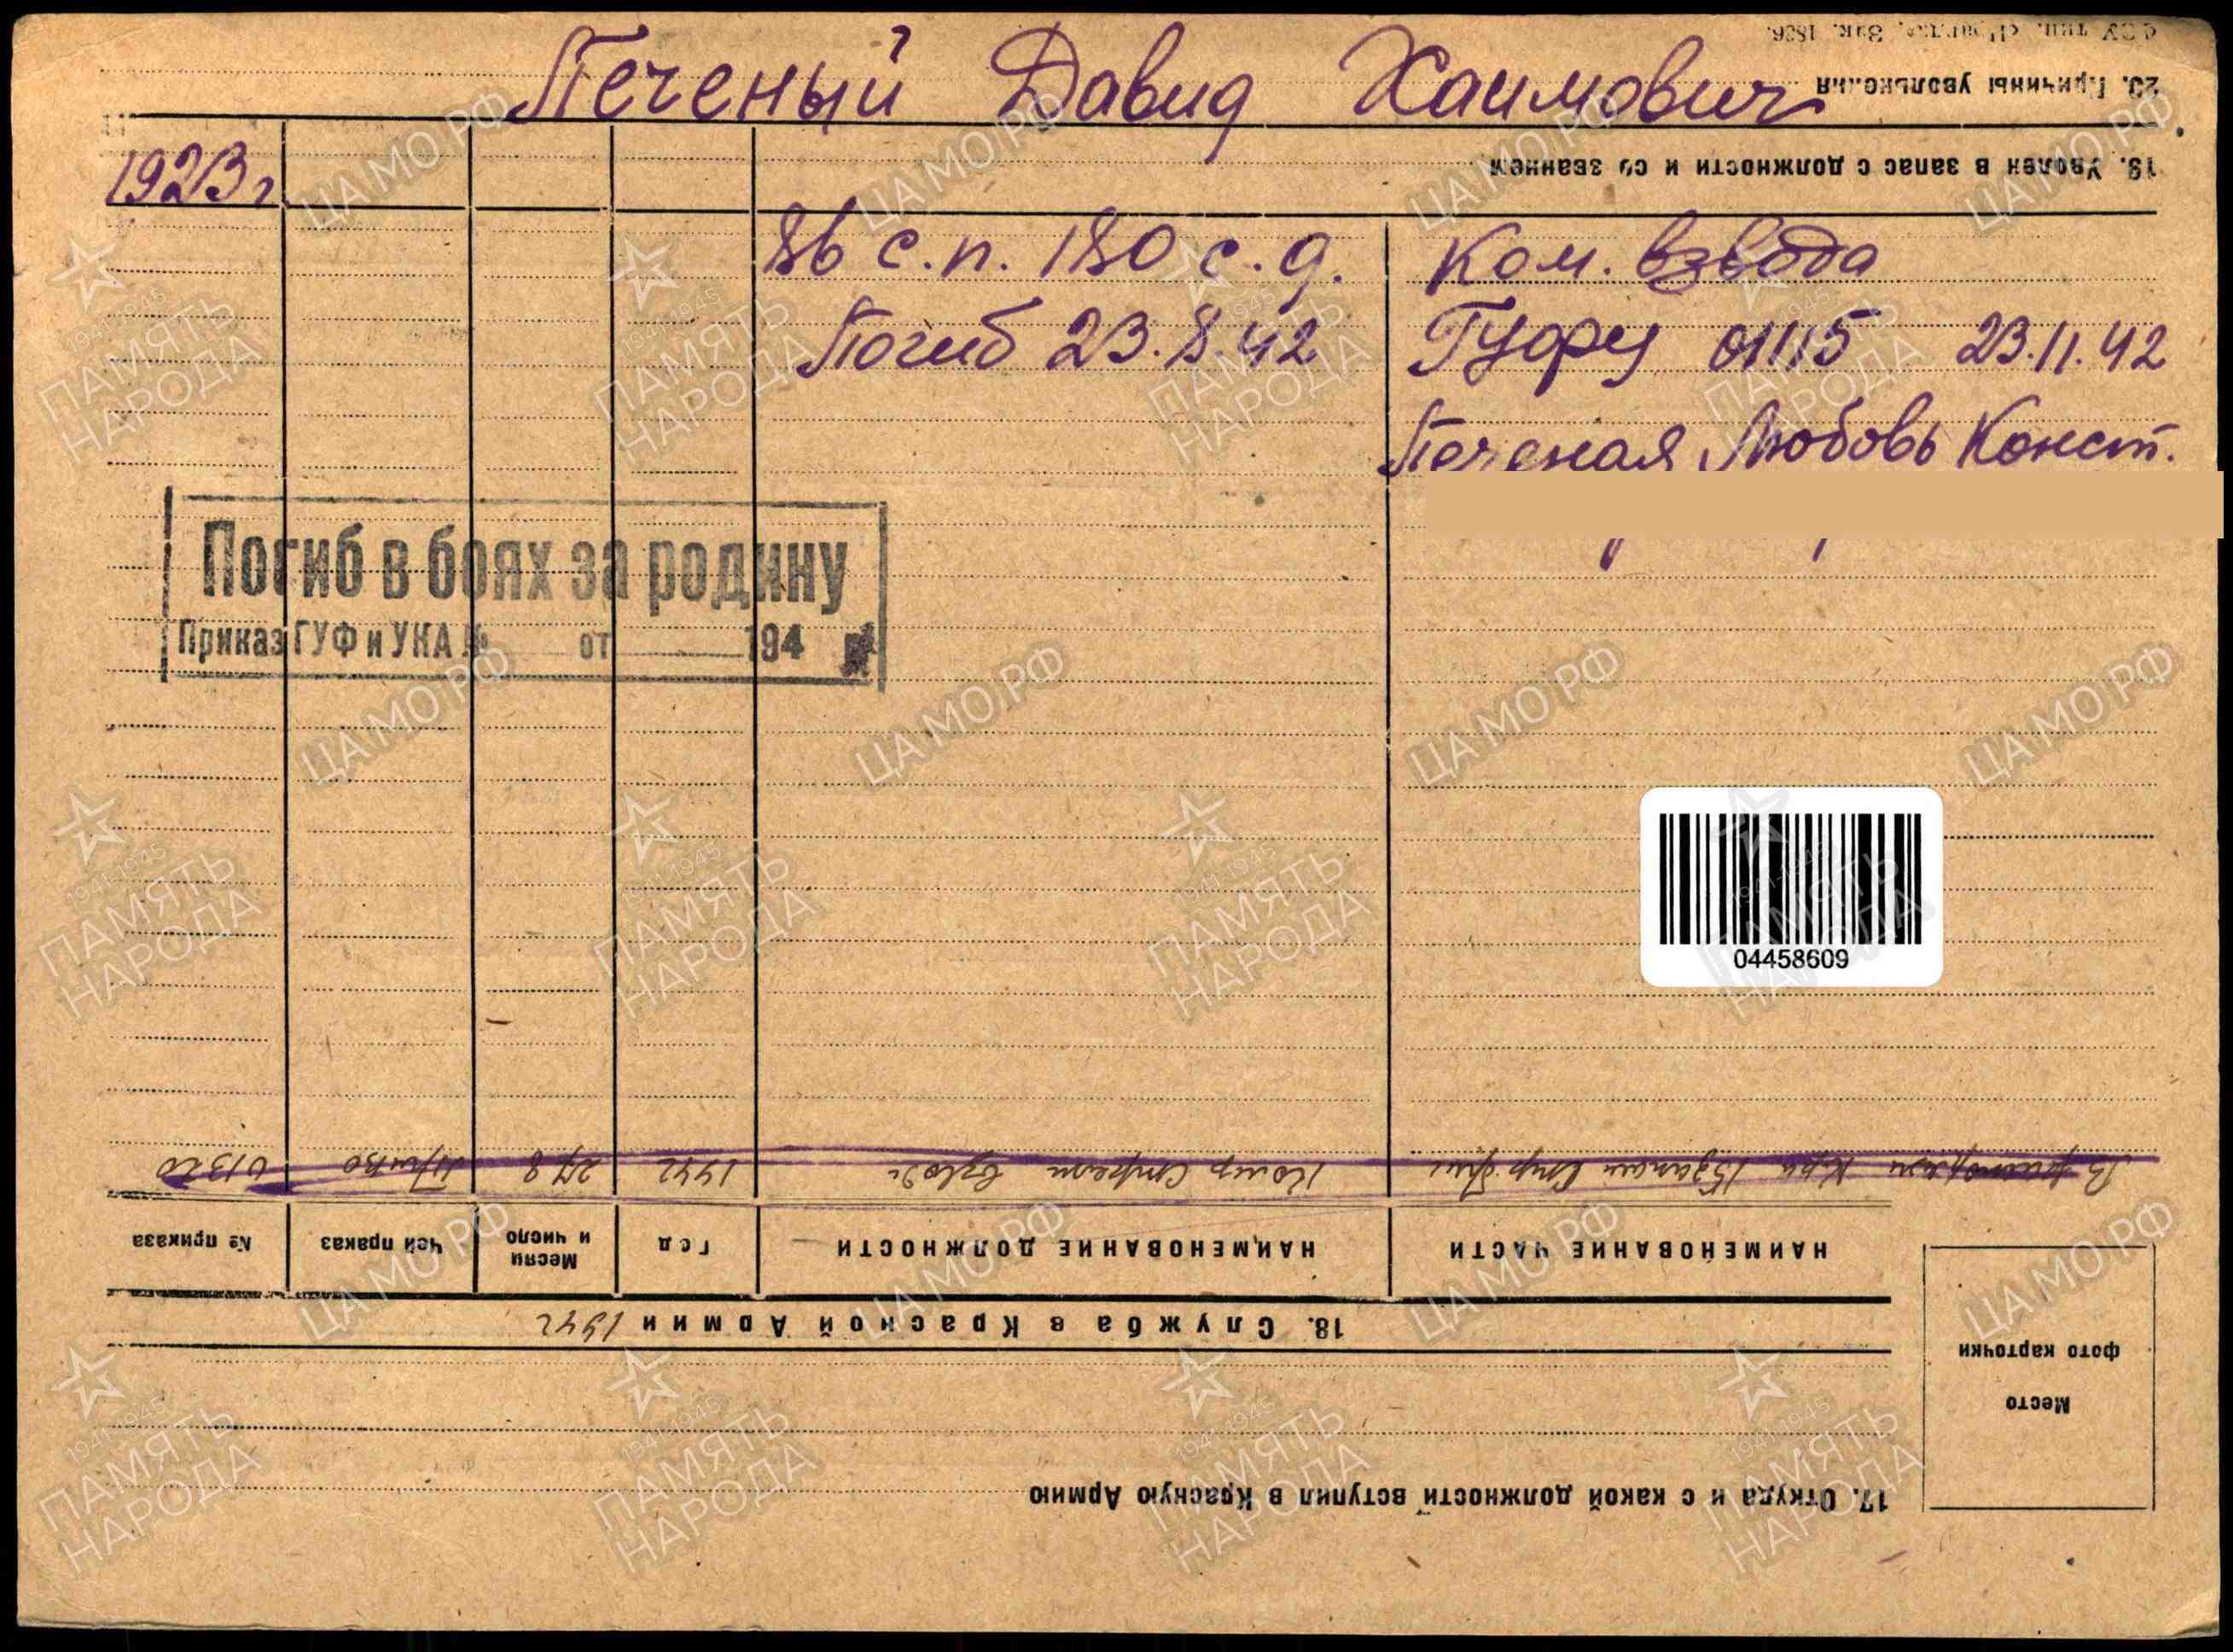 Печеный Давид Хаимович
1923 г
86 с.п. 180 с.д.
Ком. взвода
Погиб 23.8.42
Гуфу 01115 23.11.42
Печеная Любовь Конст.
Погиб в боях за родину
Приказ ГУФ и УКА № от 194 г.
04458609
17. Откуда и с какой должности вступил в Красную Армию
Место
фото карточки
18. Служба в Красной Армии 1942
НАИМЕНОВАНИЕ ЧАСТИ
НАИМЕНОВАНИЕ ДОЛЖНОСТИ
Год
Месяц и число
Чей приказ
№ приказа
В распоряжен
Комр Стрелк взвода
1942
27 8
01320
19. Уволен в запас с должности и со званием
20. Причины увольнения
Зак. 1836.
ЦАМО.РФ
1941-1945
ПАМЯТЬ
НАРОДА